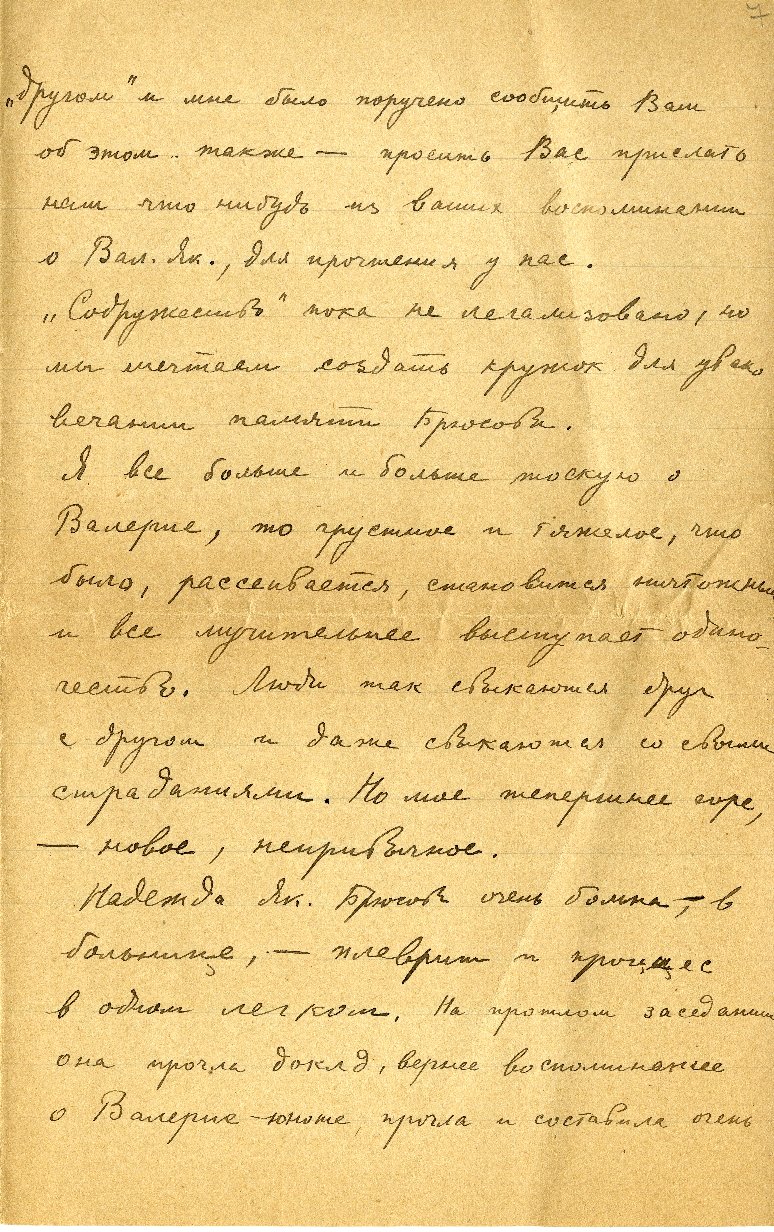 7
„другом" и мне было поручено сообщить Вам
об этом также — просить Вас прислать
нам что нибудь из ваших воспоминании
о Вал. Як., для прочтения у нас.
„Содружество" пока не легализовано, но
мы мечтаем создать кружок для увеко
вечании памяти Брюсова.
Я все больше и больше тоскую о
Валерие, то грустное и тяжелое, что
было, рассеивается, становится ничтожным
и все мучительнее выступает одино-
чество. Люди так свыкаются друг
с другом и даже свыкаются со своими
страданиями. Но мое теперишнее горе,
— новое, непривычное.
Надежда Як. Брюсова очень больна, — в
больнице, — плеврит и процес
в одном легком. На прошлом заседании
она прочла доклд, вернее воспоминание
о Валерие-юноше, прочла и составила очень